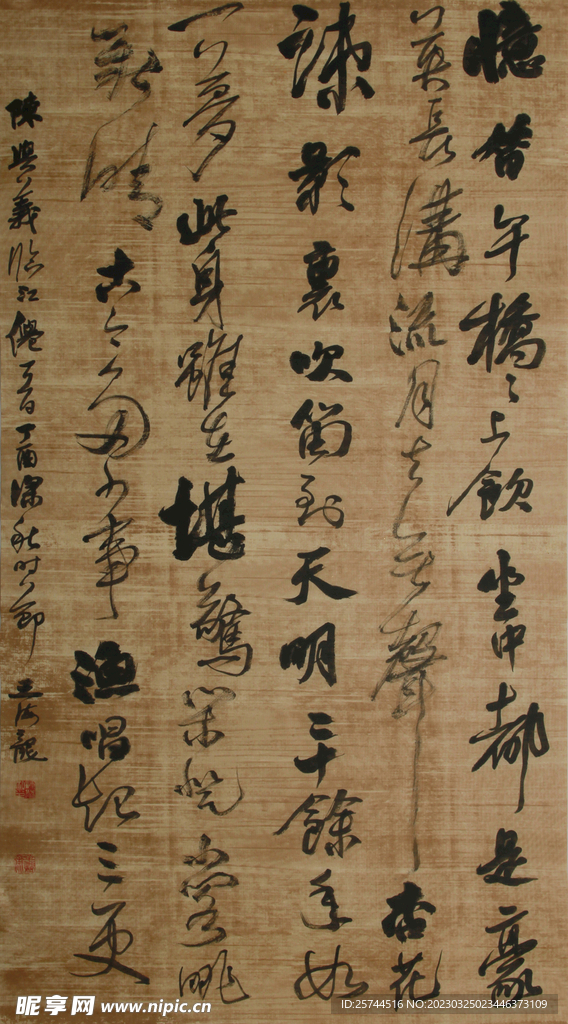 憶昔午橋〻上飲坐中都是豪
英長溝流月去無聲杏花
疎影裏吹笛到天明二十餘年如
一夢此身雖在堪驚閑登小閣眺
新晴古今多少事漁唱起三更
陳與義臨江僊一首丁酉深秋時節王海龍
昵享网 www.nipic.cn
ID:25744516 NO:20230325023446373109